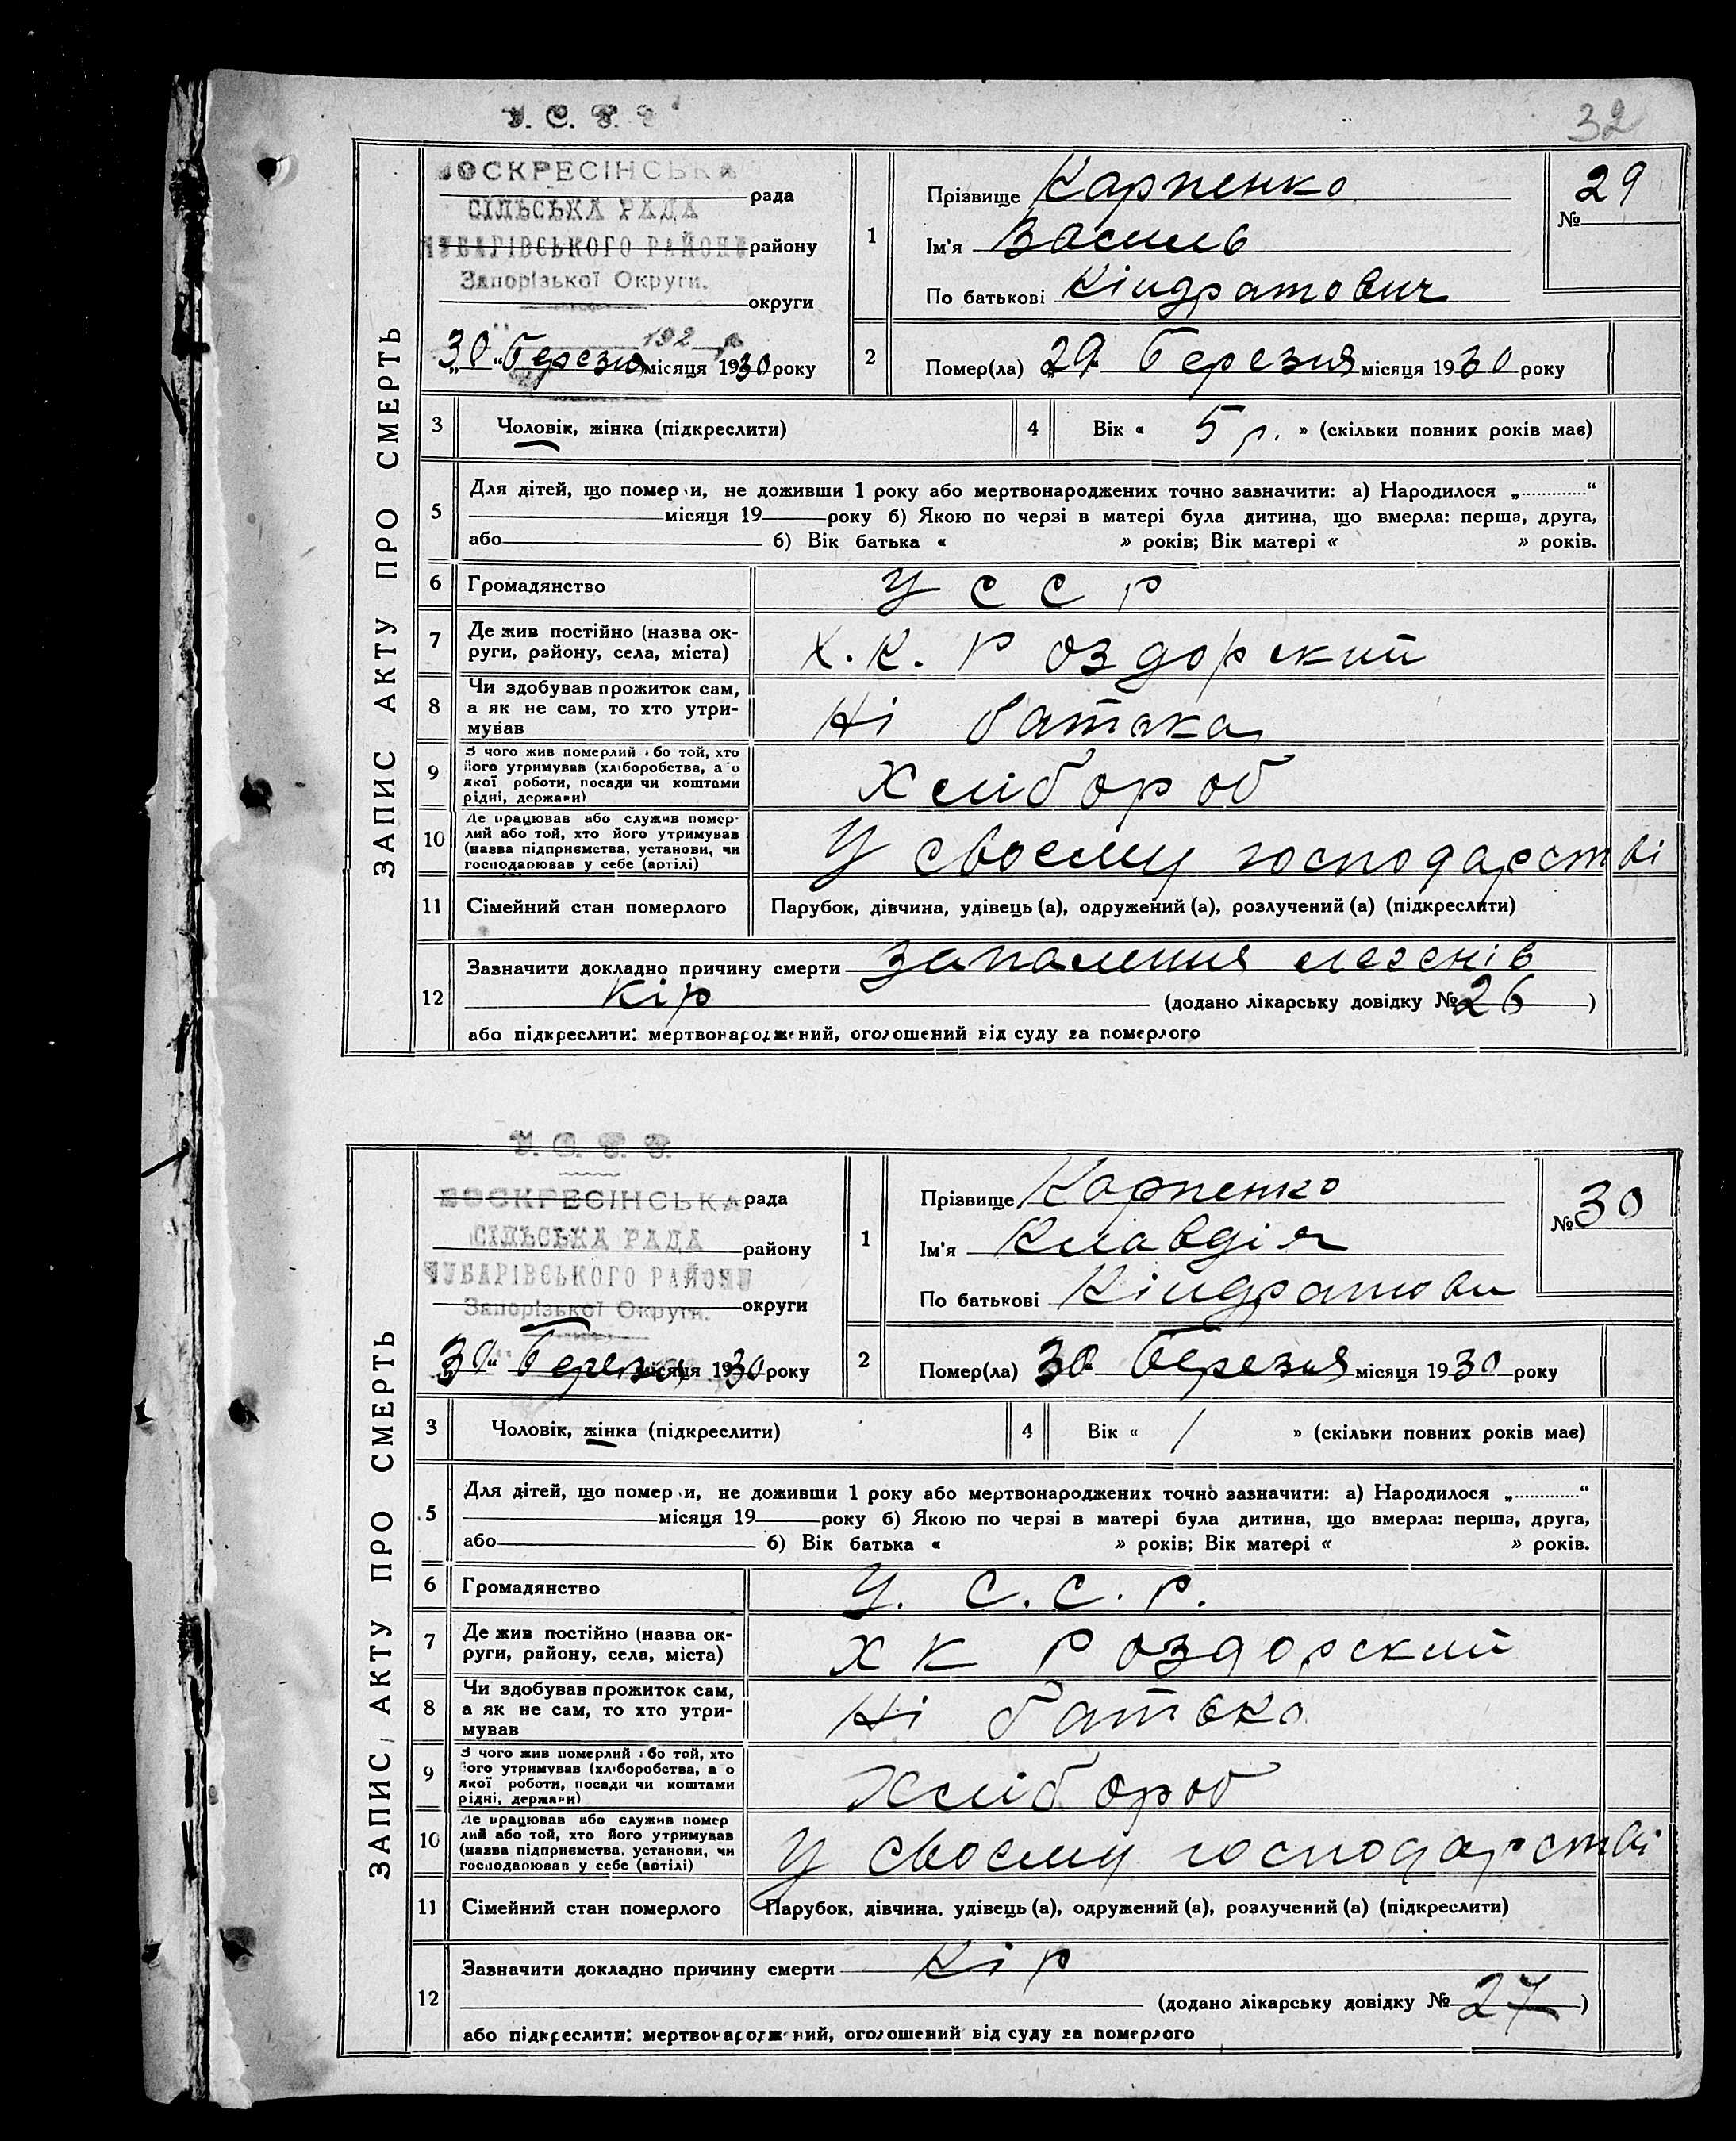 32
У. С. Р. Р.
ВОСКРЕСІНСЬКА
рада
СІЛЬСЬКА РАДА
ЧУБАРІВСЬКОГО РАЙОНУ
району
Запорізької Округи.
округи
192 р.
„30“ березня місяця 1930 року
ЗАПИС АКТУ ПРО СМЕРТЬ
1
Прізвище Карпенко
Ім'я Василь
По батькові Кіндратович
№ 29
2 Помер(ла) „29“ березня місяця 1930 року
3 Чоловік, жінка (підкреслити)
4 Вік « 5 р. » (скільки повних років має)
5
Для дітей, що померли, не доживши 1 року або мертвонароджених точно зазначити: а) Народилося „............“
місяця 19 року б) Якою по черзі в матері була дитина, що вмерла: перша, друга,
або б) Вік батька « » років; Вік матері « » років.
6 Громадянство У С С Р
7 Де жив постійно (назва ок-
руги, району, села, міста) Х. К. Роздорский
8 Чи здобував прожиток сам,
а як не сам, то хто утри-
мував Ні батька
9 З чого жив померлий або той, хто
його утримував (хліборобства, або
якої роботи, посади чи коштами
рідні, держави) Хлібороб
10 Де працював або служив помер-
лий або той, хто його утримував
(назва підприємства, установи, чи
господарював у себе (артілі) У своєму господарстві
11 Сімейний стан померлого Парубок, дівчина, удівець (а), одружений (а), розлучений (а) (підкреслити)
12
Зазначити докладно причину смерти запалення легенів
кір (додано лікарську довідку № 26 )
або підкреслити: мертвонароджений, оголошений від суду за померлого
У. С. Р. Р.
ВОСКРЕСІНСЬКА рада
СІЛЬСЬКА РАДА району
ЧУБАРІВСЬКОГО РАЙОНУ
Запорізької Округи. округи
„30“ березня місяця 1930 року
ЗАПИС АКТУ ПРО СМЕРТЬ
1
Прізвище Карпенко
Ім'я Клавдія
По батькові Кіндратовн
№ 30
2 Помер(ла) „30“ березня місяця 1930 року
3 Чоловік, жінка (підкреслити)
4 Вік « 1 » (скільки повних років має)
5
Для дітей, що померли, не доживши 1 року або мертвонароджених точно зазначити: а) Народилося „............“
місяця 19 року б) Якою по черзі в матері була дитина, що вмерла: перша, друга,
або б) Вік батька « » років; Вік матері « » років.
6 Громадянство У. С. С. Р.
7 Де жив постійно (назва ок-
руги, району, села, міста) Х К Роздорский
8 Чи здобував прожиток сам,
а як не сам, то хто утри-
мував Ні батько
9 З чого жив померлий або той, хто
його утримував (хліборобства, або
якої роботи, посади чи коштами
рідні, держави) Хлібороб
10 Де працював або служив помер
лий або той, хто його утримував
(назва підприємства, установи, чи
господарював у себе (артілі) У своєму господарстві
11 Сімейний стан померлого Парубок, дівчина, удівець (а), одружений (а), розлучений (а) (підкреслити)
12
Зазначити докладно причину смерти Кір
(додано лікарську довідку № 27 )
або підкреслити: мертвонароджений, оголошений від суду за померлого